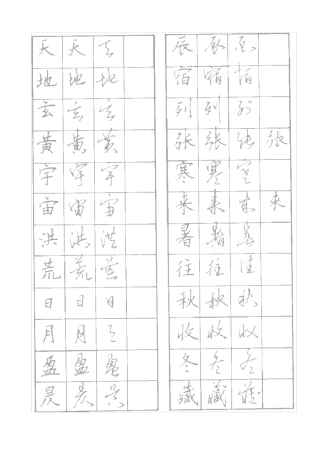 天 天 天
地 地 地
玄 玄 玄
黄 黄 黄
宇 宇 宇
宙 宙 宙
洪 洪 洪
荒 荒 荒
日 日 日
月 月 月
盈 盈 盈
昃 昃 昃
辰 辰 辰
宿 宿 宿
列 列 列
张 张 张 張
寒 寒 寒
来 来 来 來
暑 暑 暑
往 往 往
秋 秋 秋
收 收 收
冬 冬 冬
藏 藏 藏